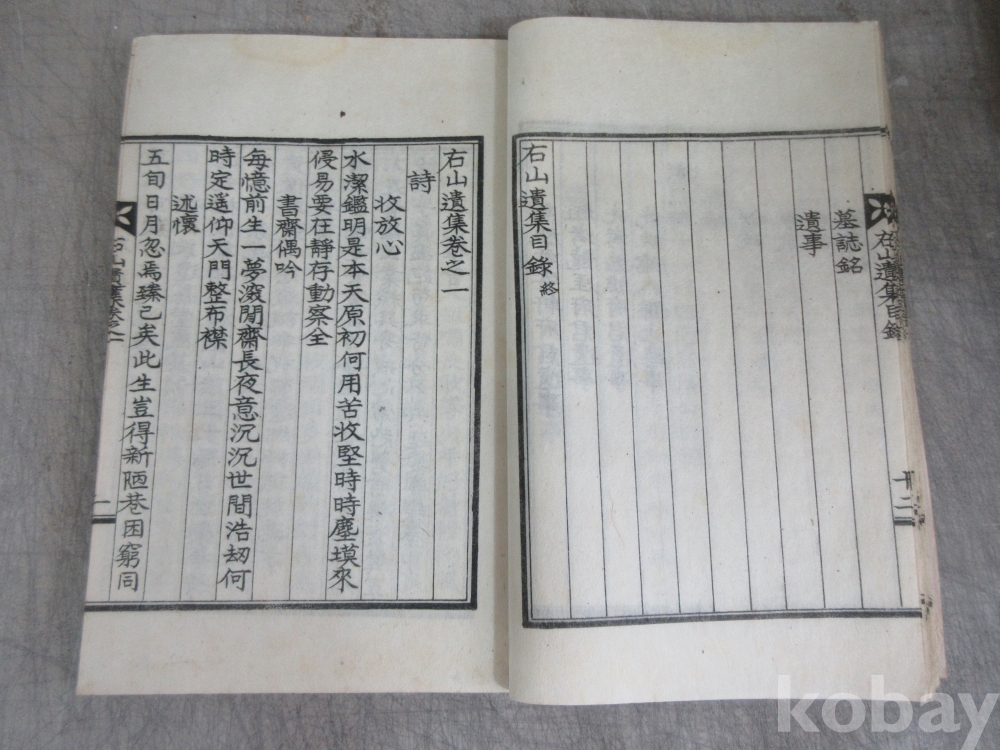 墓誌銘
遺事
右山遺集目錄 終
右山遺集目錄
卅二
右山遺集卷之一
詩
收放心
水潔鑑明是本天原初何用苦收堅時時塵漠來
侵易要在靜存動察全
書齋偶吟
每憶前生一夢深閒齋長夜意沉沉世間浩刼何
時定遥仰天門整布襟
述懷
五旬日月忽焉臻已矣此生豈得新陋巷困窮同
右山遺集卷之一
一
kobay